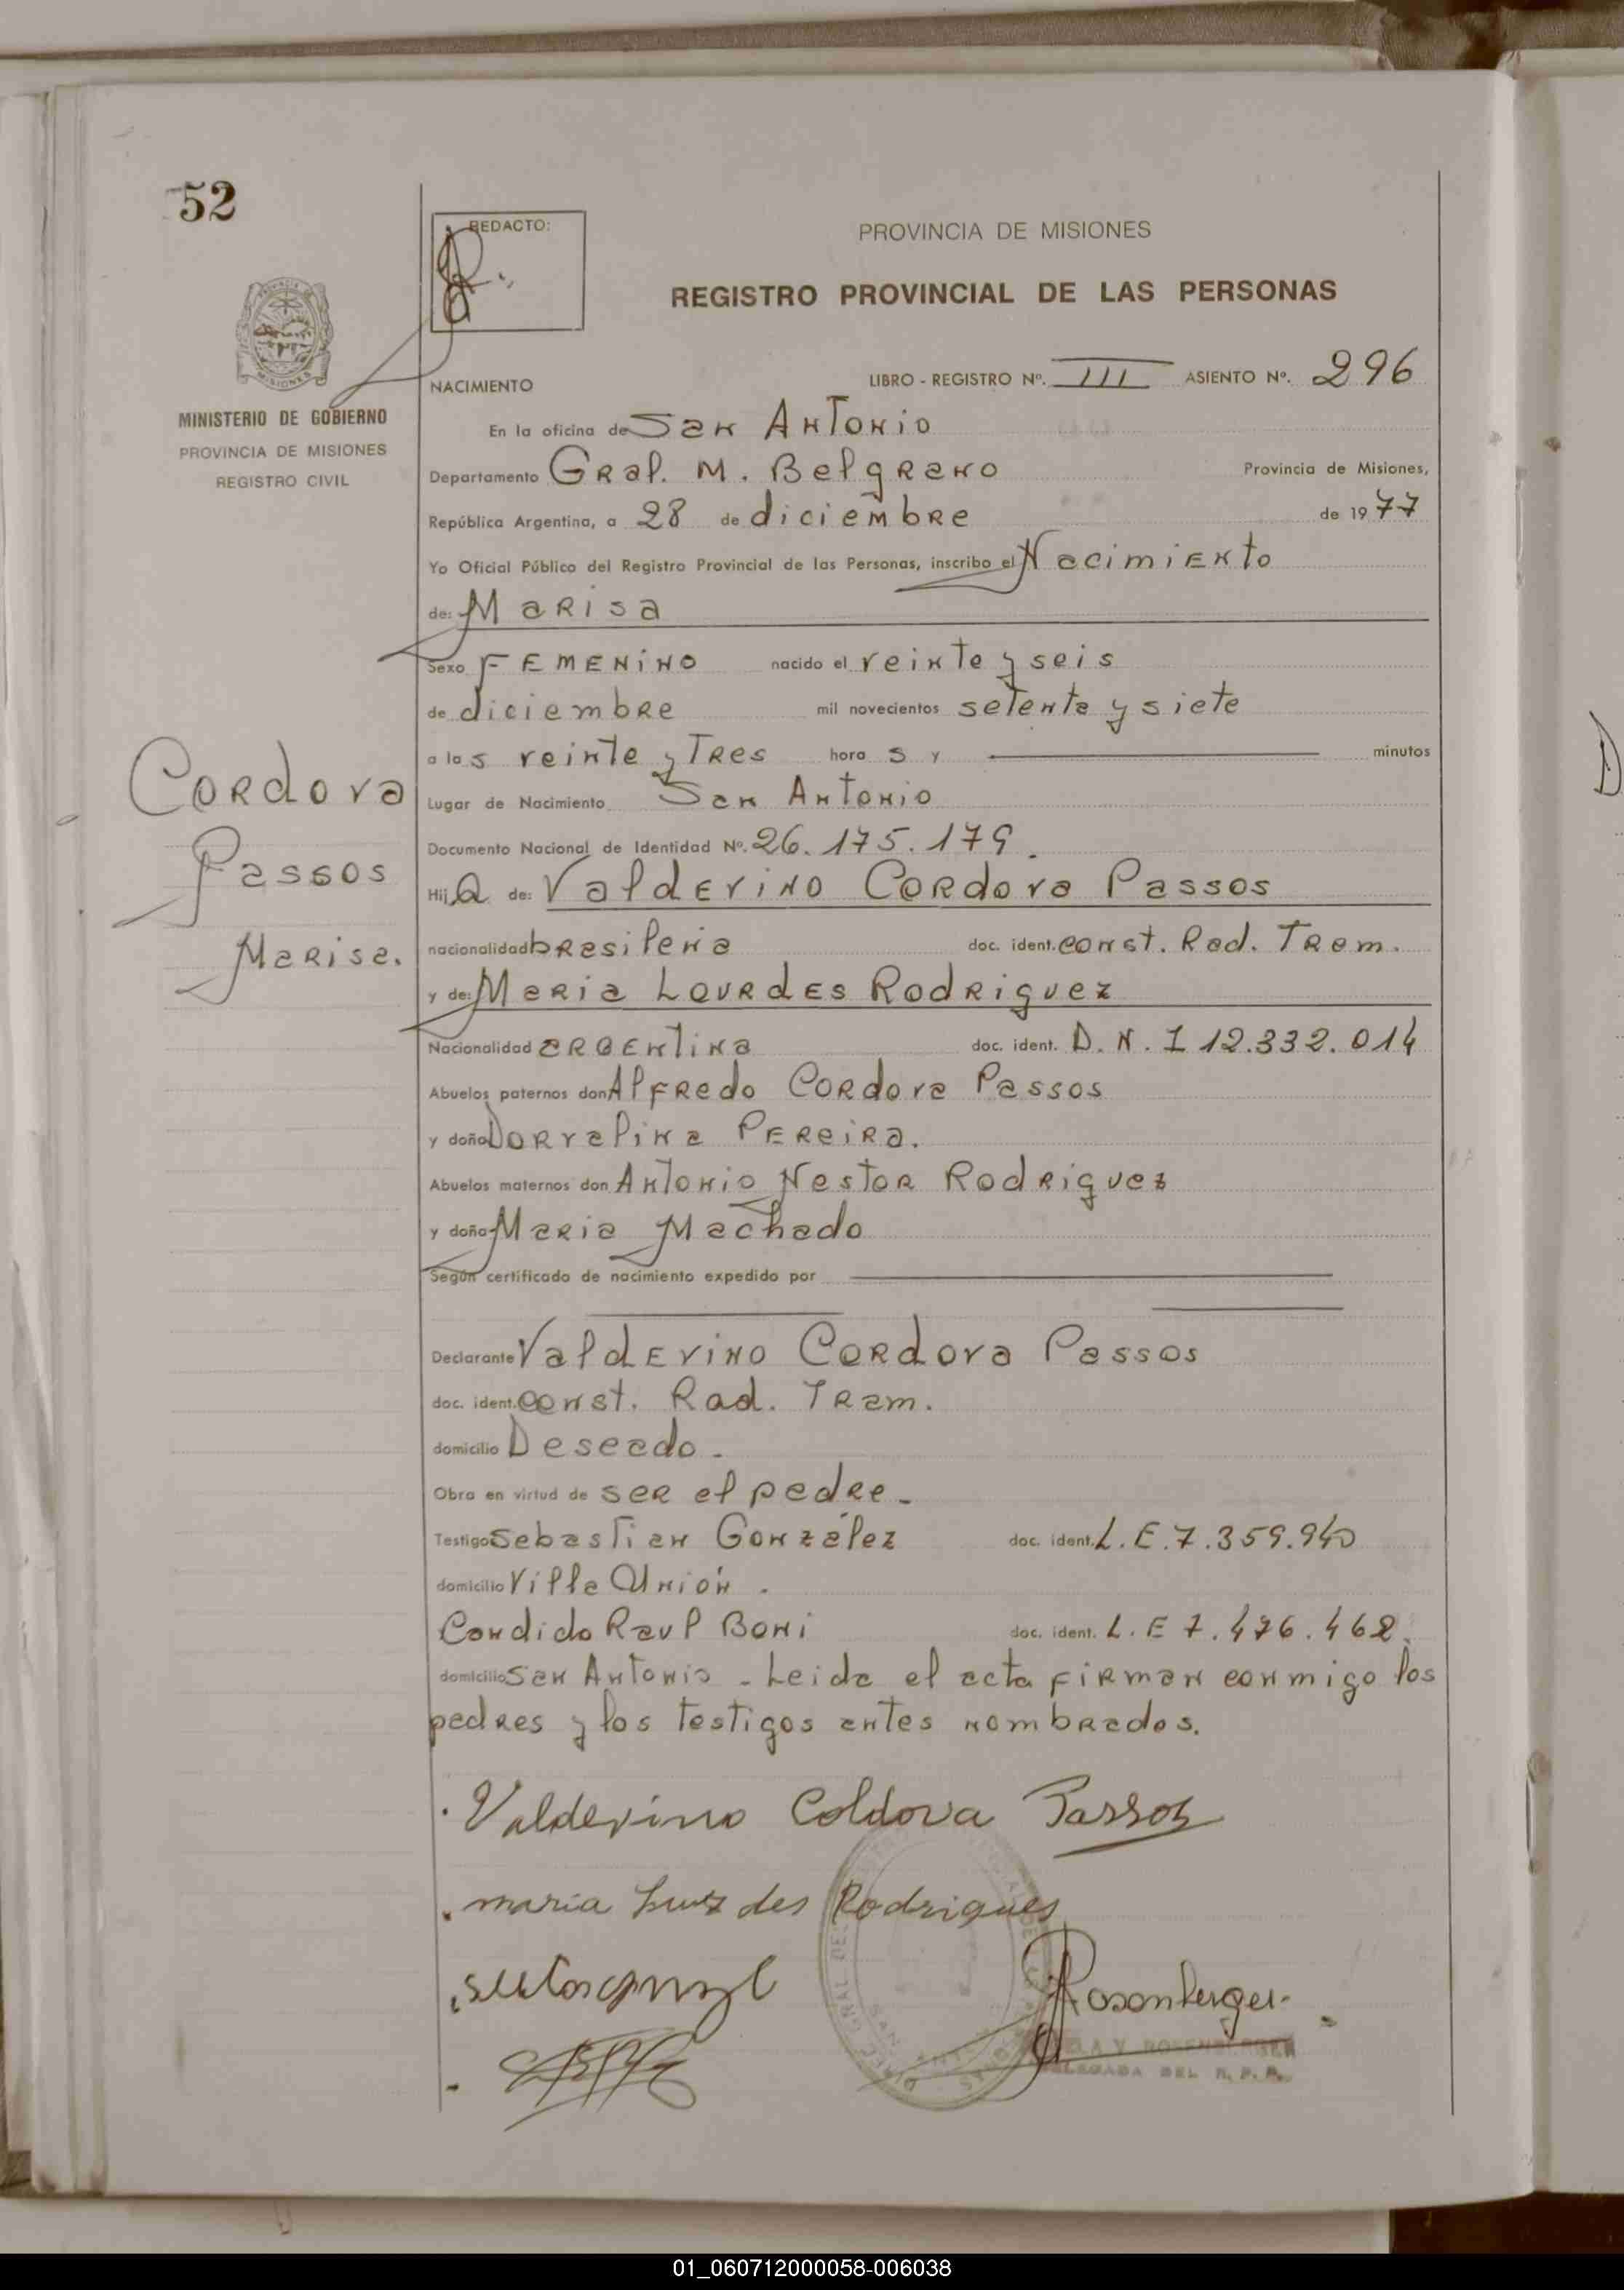 52
REDACTO:
PROVINCIA DE MISIONES
REGISTRO PROVINCIAL DE LAS PERSONAS
MINISTERIO DE GOBIERNO
PROVINCIA DE MISIONES
REGISTRO CIVIL
NACIMIENTO
LIBRO - REGISTRO Nº. III ASIENTO Nº. 296
En la oficina de San Antonio
Departamento Gral. M. Belgrano Provincia de Misiones,
República Argentina, a 28 de diciembre de 1977
Yo Oficial Público del Registro Provincial de las Personas, inscribo el Nacimiento
de: Marisa
Sexo FEMENINO nacido el veinte y seis
de diciembre mil novecientos setenta y siete
a las veinte y Tres horas y minutos
Cordova
Passos
Marisa.
Lugar de Nacimiento San Antonio
Documento Nacional de Identidad Nº. 26.175.179.
Hija de: Valdevino Cordova Passos
nacionalidad brasileña doc. ident. const. Rad. Tram.
y de: Maria Lourdes Rodriguez
Nacionalidad argentina doc. ident. D.N.I 12.332.014
Abuelos paternos don Alfredo Cordova Passos
y doña Dorvalina Pereira.
Abuelos maternos don Antonio Nestor Rodriguez
y doña Maria Machado
Según certificado de nacimiento expedido por
Declarante Valdevino Cordova Passos
doc. ident. const. Rad. Tram.
domicilio Deseado.
Obra en virtud de ser el padre.
Testigo Sebastian González doc. ident. L.E. 7.359.940
domicilio Villa Unión.
Candido Raul Boni doc. ident. L.E 7.476.462.
domicilio San Antonio - Leida el acta firman conmigo los
padres y los testigos antes nombrados.
Valdevino Coldova Passos
maria Luz des Rodrigues
Rosenberger
ROSENBERGER
DELEGADA DEL R.P.P.
01_060712000058-006038